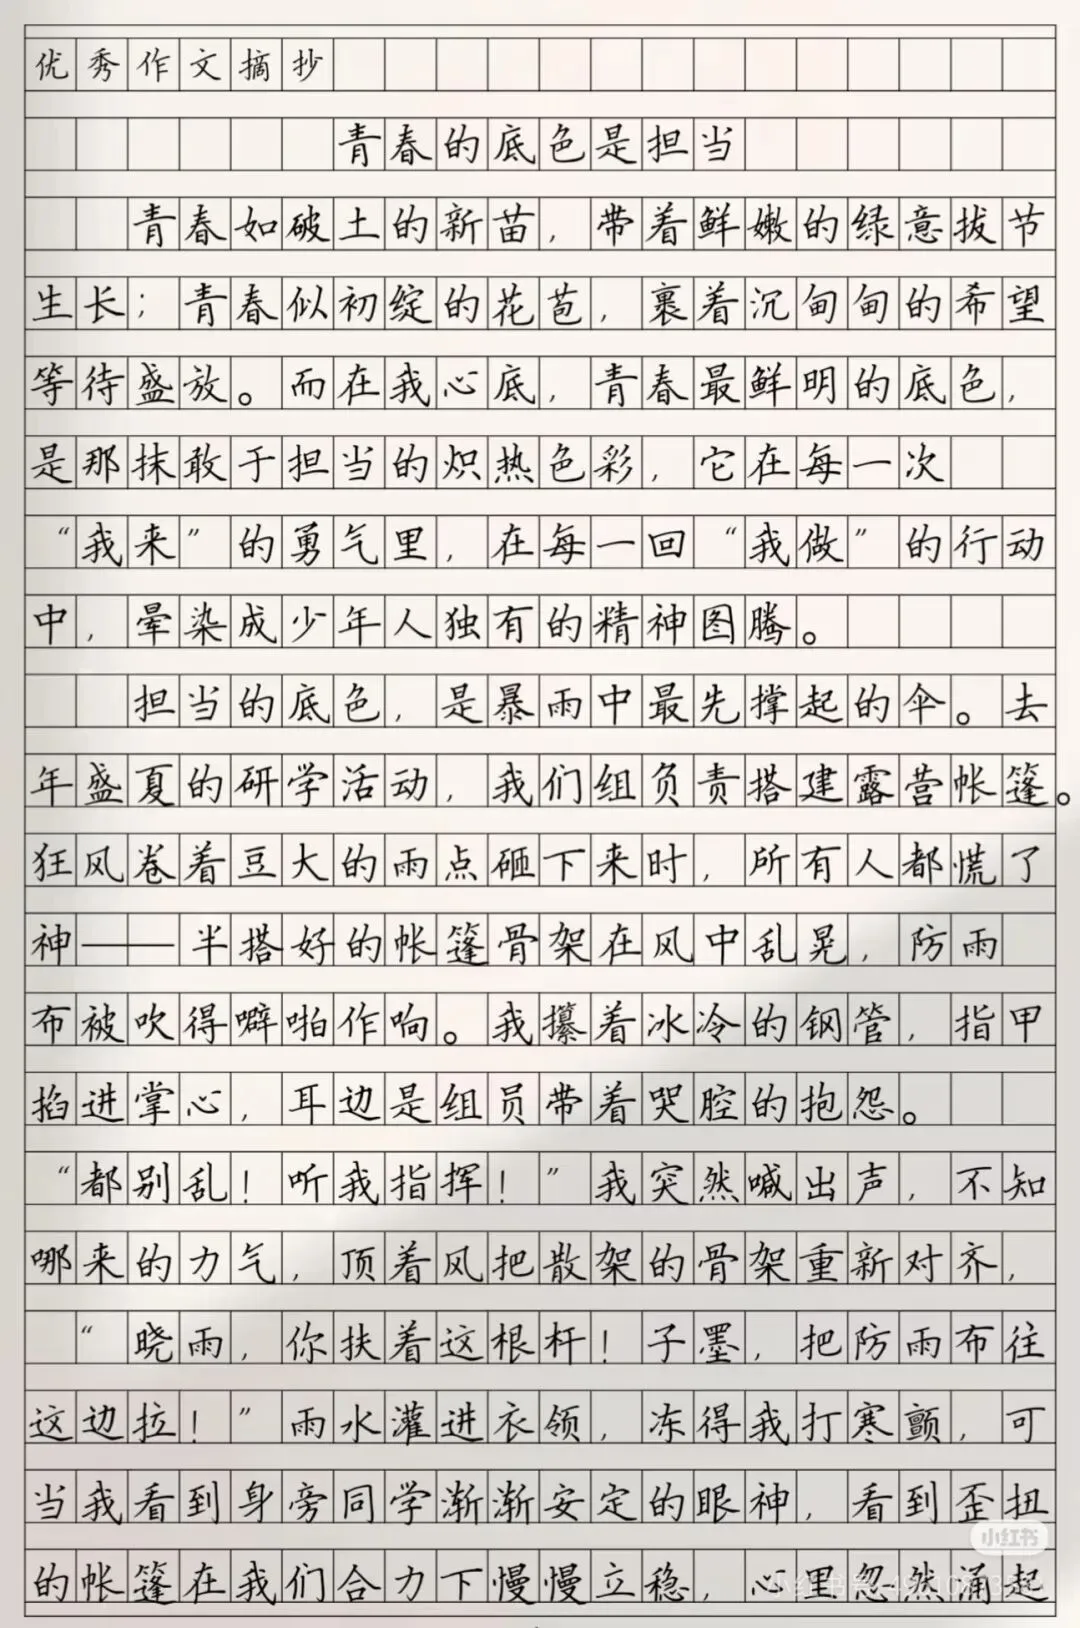 优秀作文摘抄
青春的底色是担当
青春如破土的新苗，带着鲜嫩的绿意拔节
生长；青春似初绽的花苞，裹着沉甸甸的希望
等待盛放。而在我心底，青春最鲜明的底色，
是那抹敢于担当的炽热色彩，它在每一次
“我来”的勇气里，在每一回“我做”的行动
中，晕染成少年人独有的精神图腾。
担当的底色，是暴雨中最先撑起的伞。去
年盛夏的研学活动，我们组负责搭建露营帐篷。
狂风卷着豆大的雨点砸下来时，所有人都慌了
神——半搭好的帐篷骨架在风中乱晃，防雨
布被吹得噼啪作响。我攥着冰冷的钢管，指甲
掐进掌心，耳边是组员带着哭腔的抱怨。
“都别乱！听我指挥！”我突然喊出声，不知
哪来的力气，顶着风把散架的骨架重新对齐，
“晓雨，你扶着这根杆！子墨，把防雨布往
这边拉！”雨水灌进衣领，冻得我打寒颤，可
当我看到身旁同学渐渐安定的眼神，看到歪扭
的帐篷在我们合力下慢慢立稳，心里忽然涌起
小红书